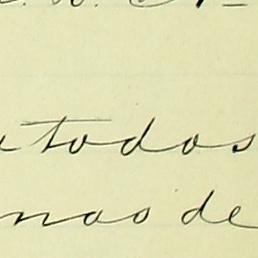 a todos
nao de